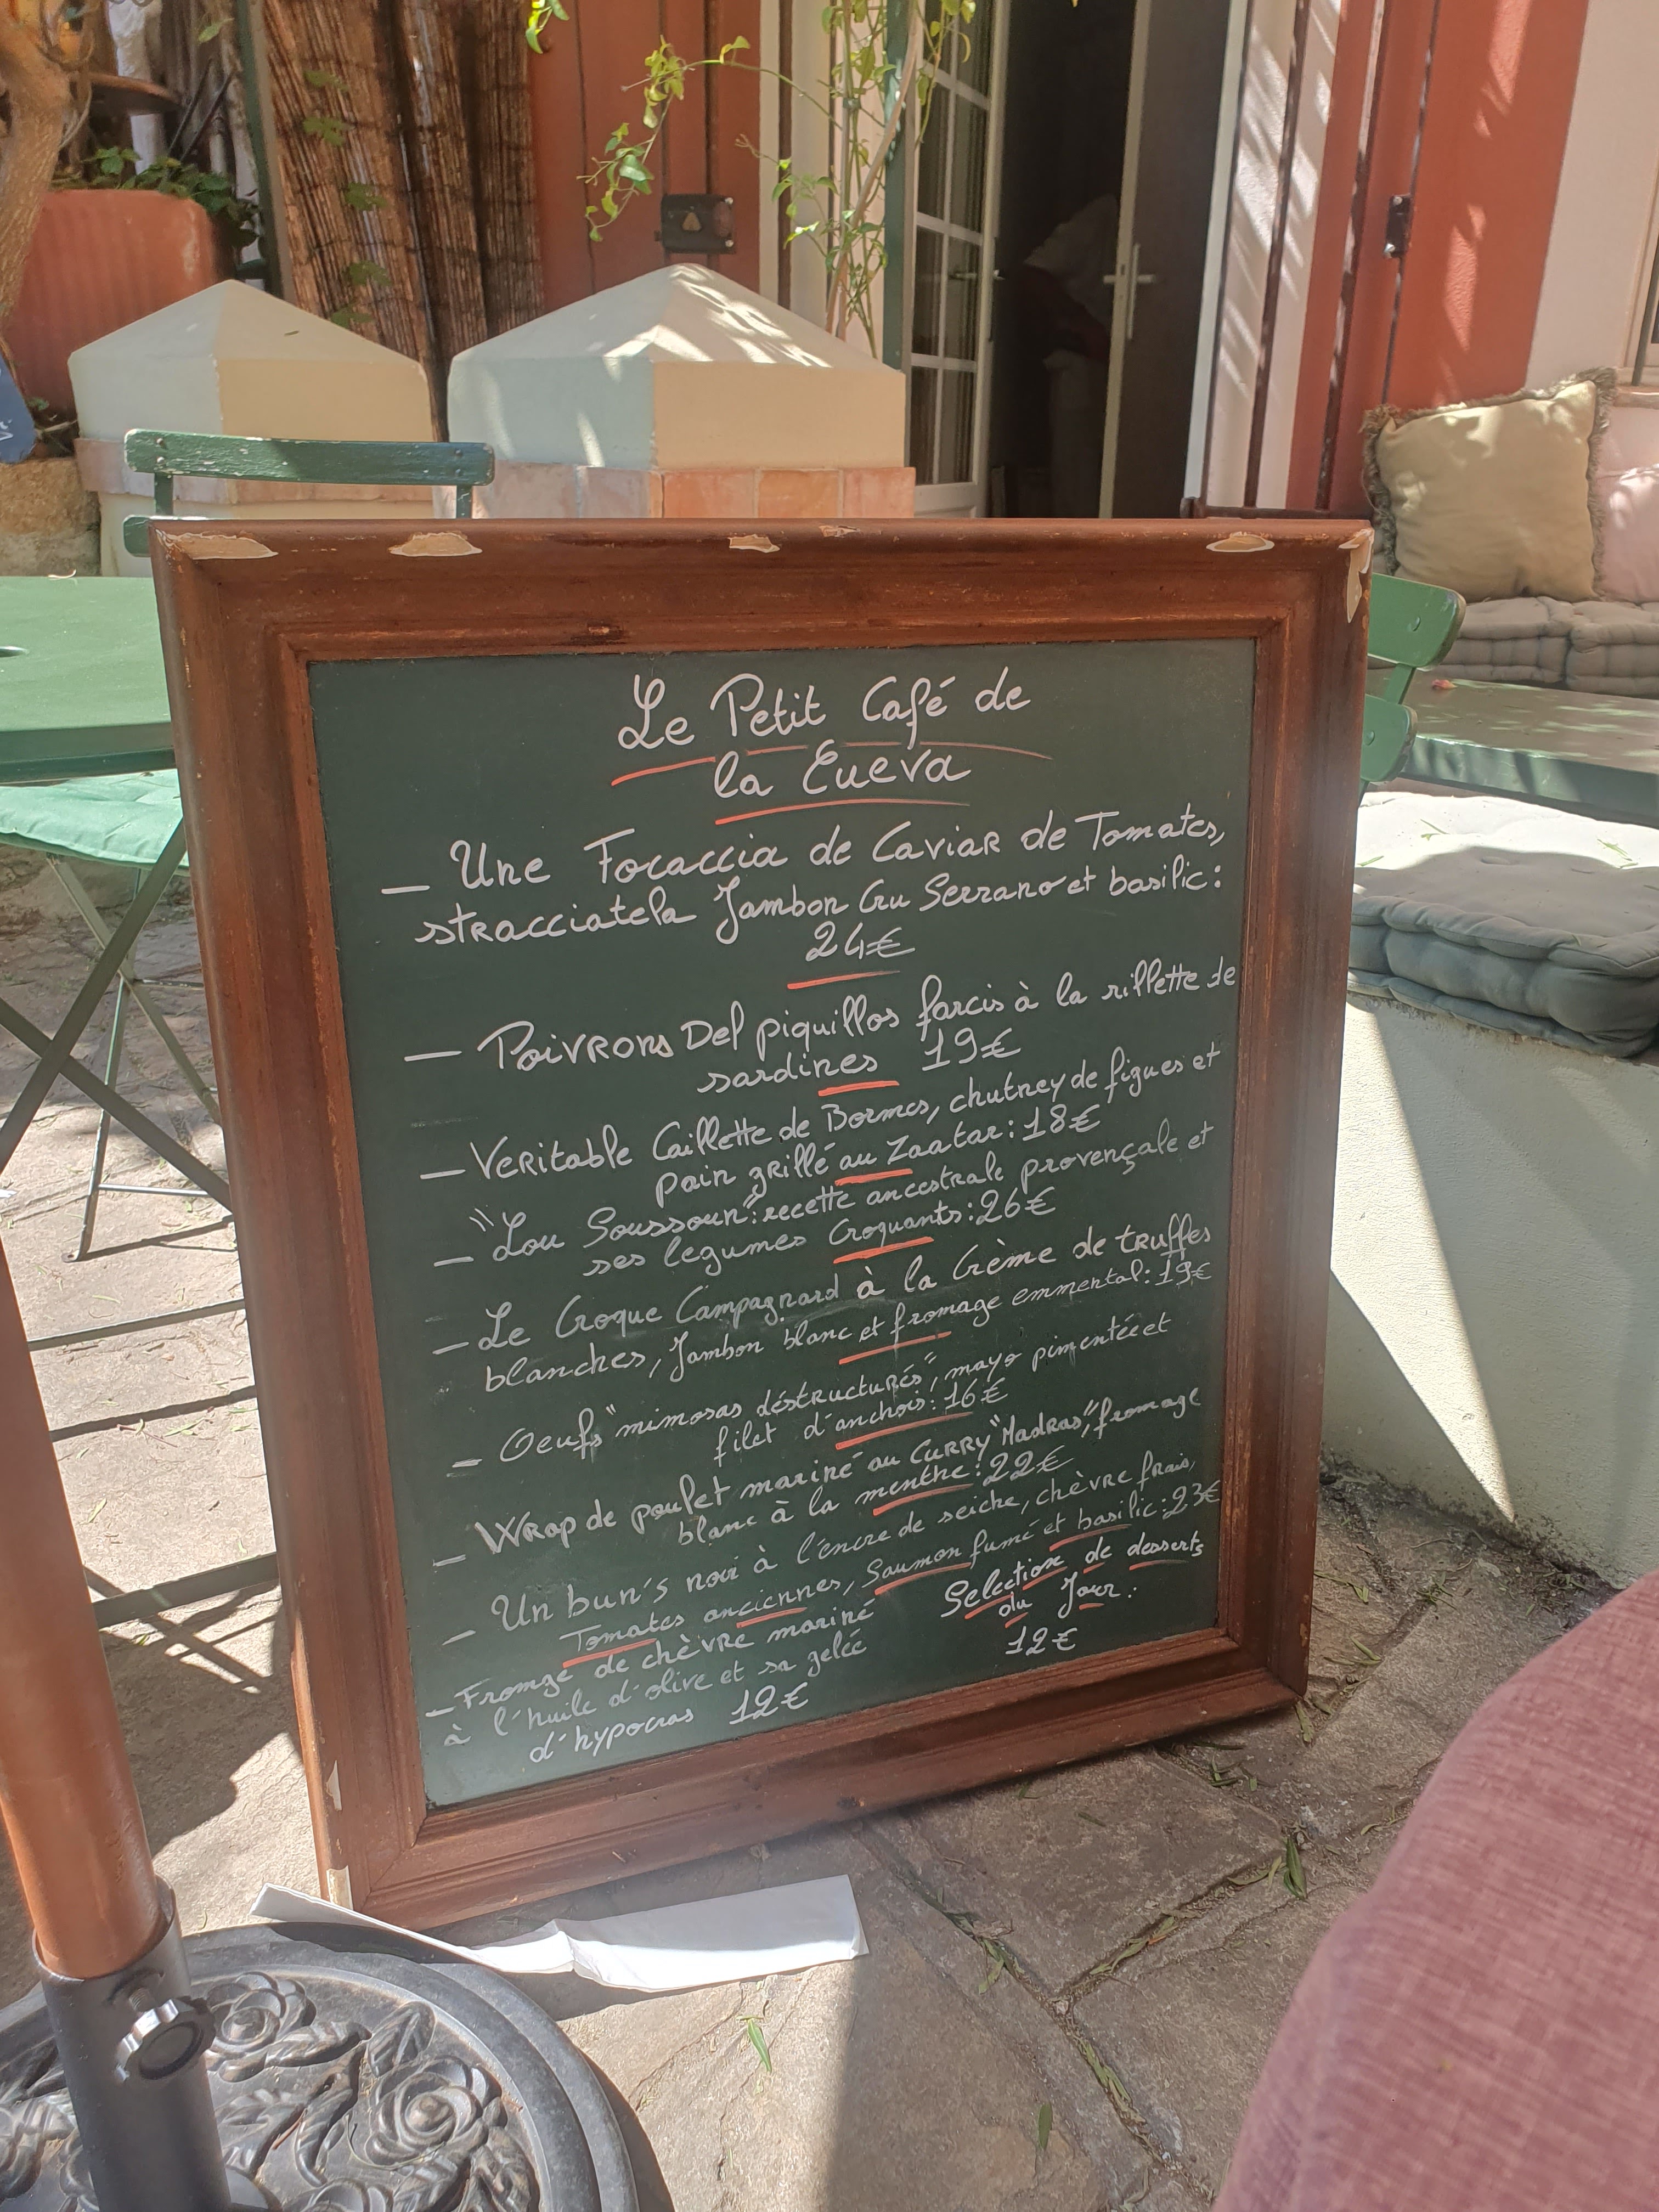 Le Petit Café de
la Cueva
— Une Focaccia de Caviar de Tomates,
stracciatela Jambon Cru Serrano et basilic :
24€
— Poivrons Del piquillos farcis à la rillette de
sardines 19€
— Veritable Caillette de Bormes, chutney de figues et
pain grillé au Zaatar : 18€
— "Lou Soussoun": recette ancestrale provençale et
ses legumes Croquants : 26€
— Le Croque Campagnard à la Crème de truffes
blanches, Jambon blanc et fromage emmental : 19€
— Oeufs "mimosas déstructurés", mayo pimentée et
filet d'anchois : 16€
— Wrap de poulet mariné au Curry "Madras", fromage
blanc à la menthe : 22€
— Un bun's noir à l'encre de seiche, chèvre frais,
Tomates anciennes, Saumon fumé et basilic : 23€
— Fromge de chèvre mariné
à l'huile d'olive et sa gelée
d'hypocras 12€
Selection de desserts
du Jour :
12€